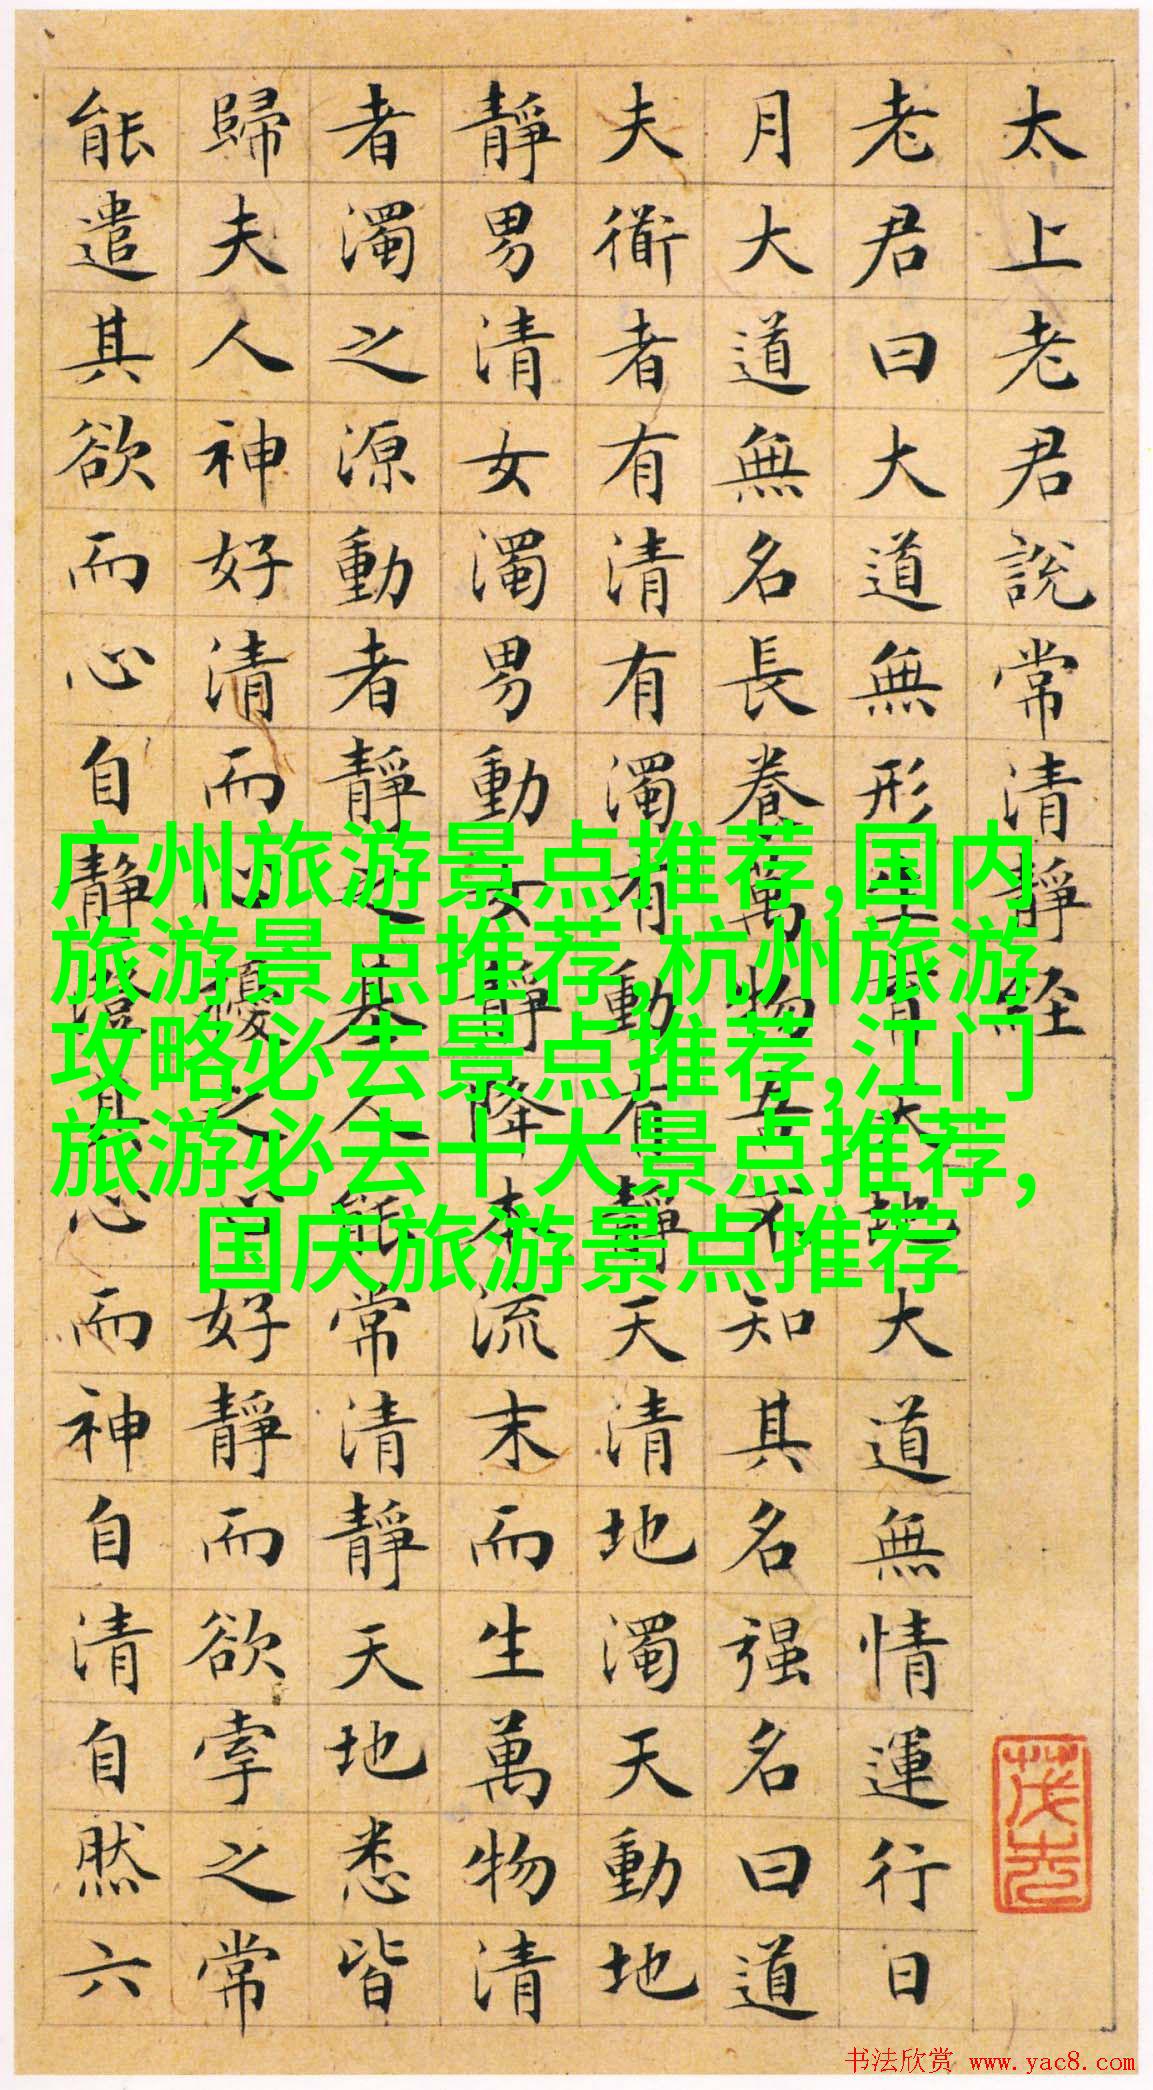 太上老君說常清靜経
老君曰大道無形生育天地大道無情運行日
月大道無名長養萬物吾不知其名强名曰道
夫衜者有清有濁有動有靜天清地濁天動地
靜男清女濁男動女靜降本流末而生萬物清
者濁之源動者靜之基人能常清靜天地悉皆
歸夫人神好清而心擾之心好靜而欲牽之常
能遣其欲而心自靜澄其心而神自清自然六
广州旅游景点推荐,国内
旅游景点推荐,杭州旅游
攻略必去景点推荐,江门
旅游必去十大景点推荐,
国庆旅游景点推荐
书法欣赏 www.yac8.com